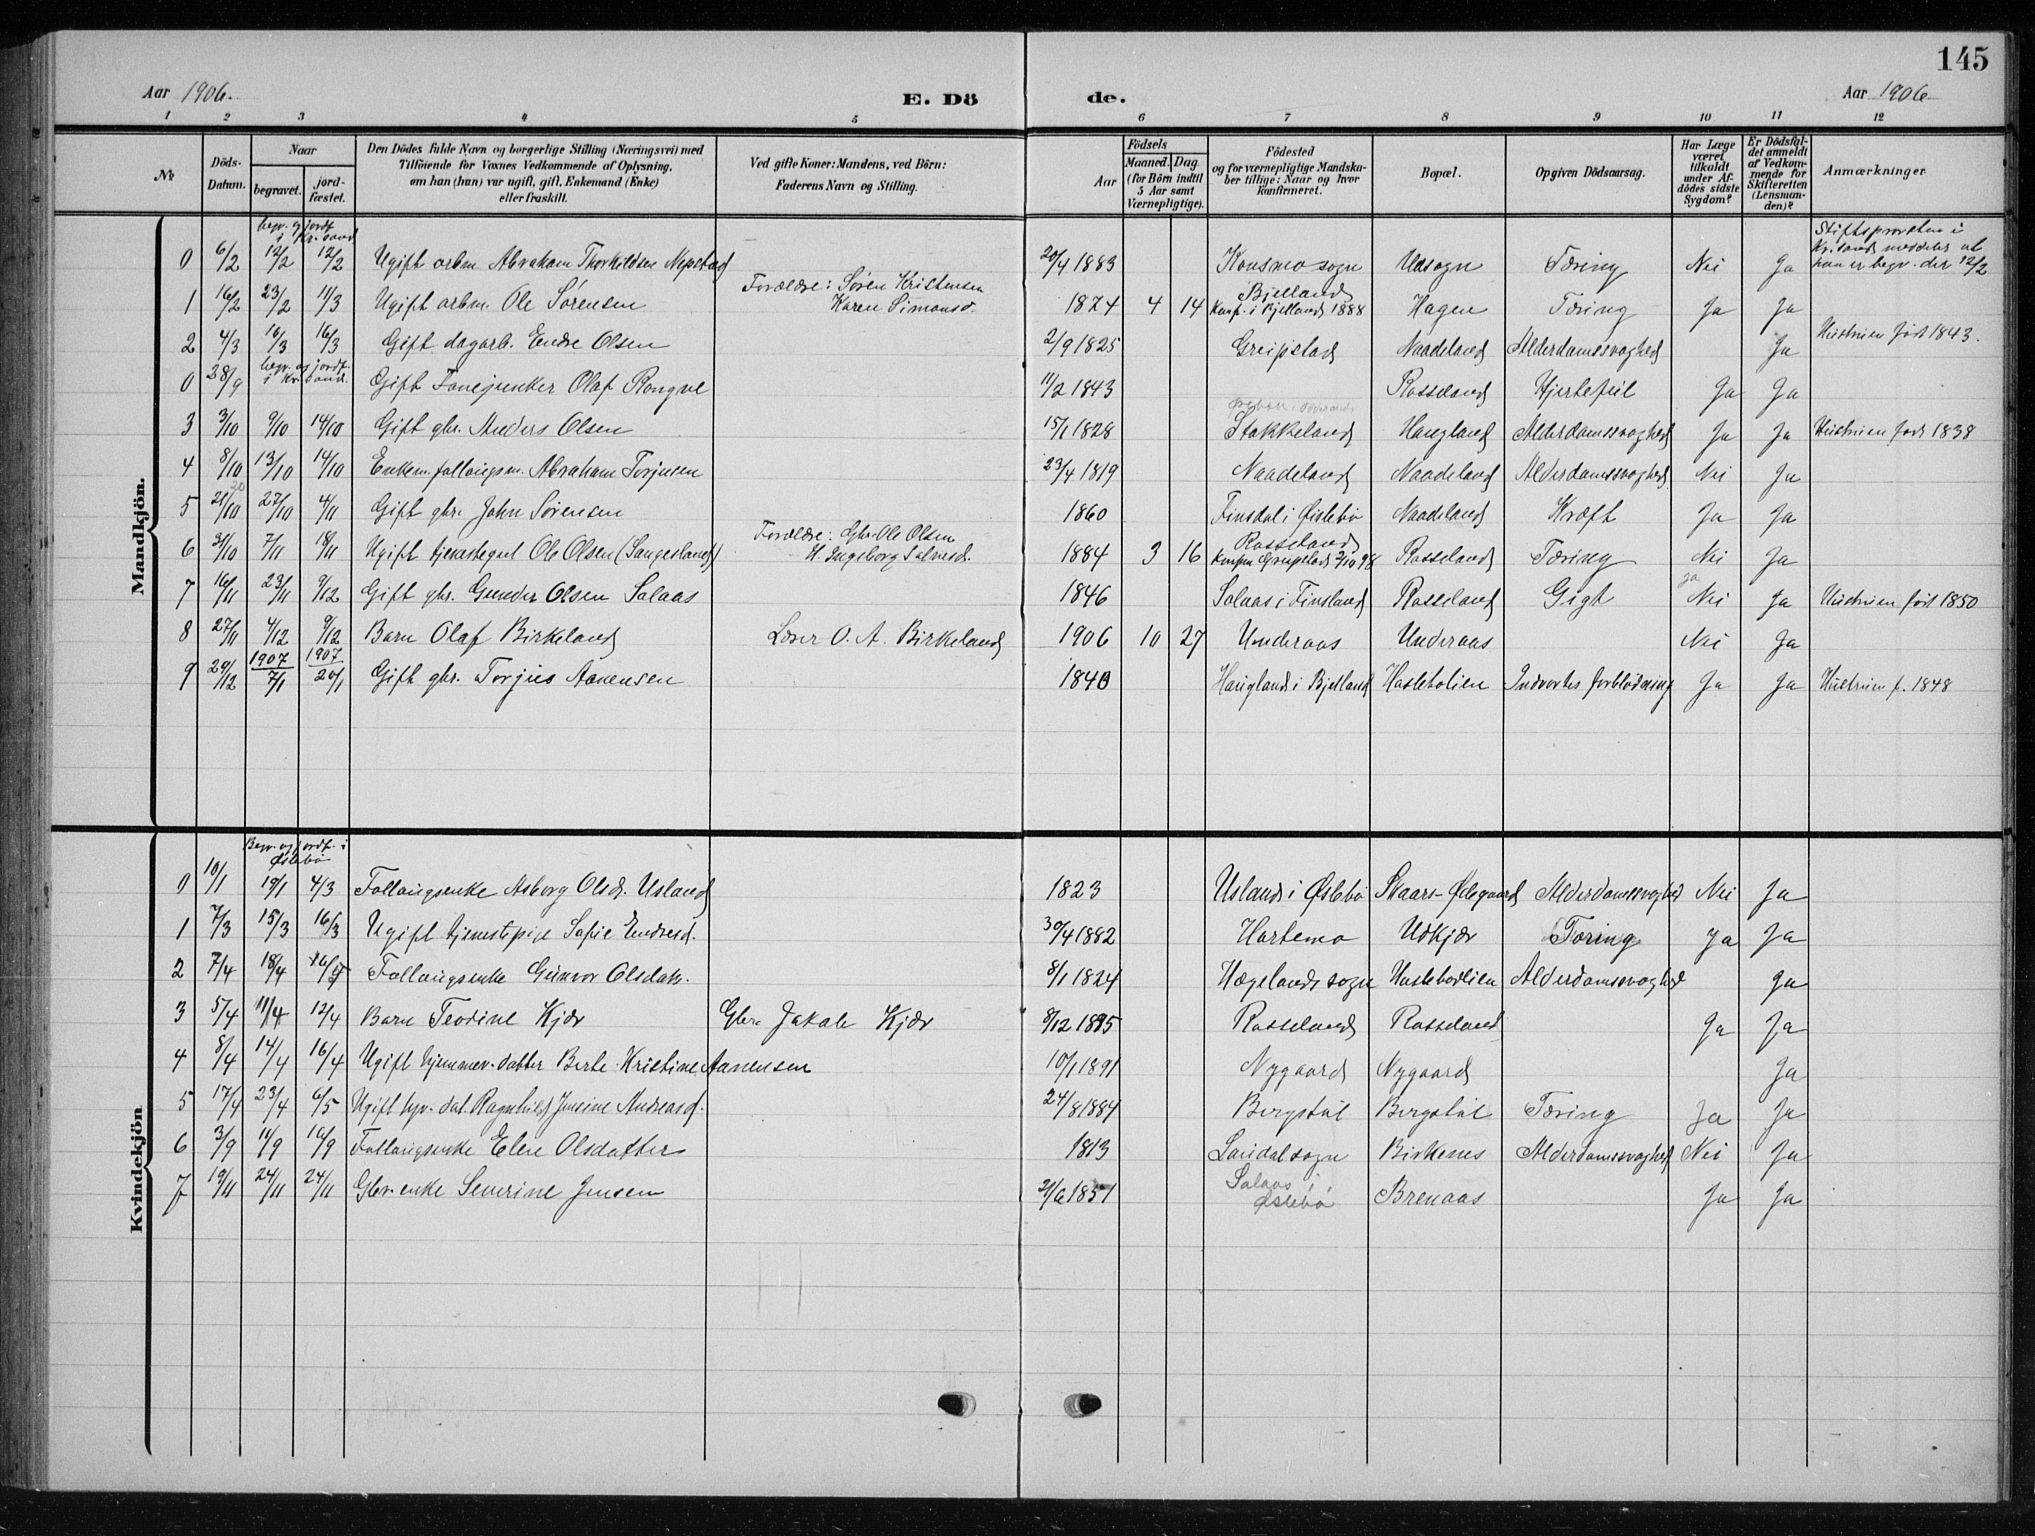 145
Aar 1906.
E. Dö
de.
Aar 1906
1 2 3 4 5 6 7 8 9 10 11 12
№
Döds-
Datum.
Naar
begravet.
jord-
fæstet.
Den Dödes fulde Navn og borgerlige Stilling (Næringsvei) med
Tilföiende for Voxnes Vedkommende af Oplysning,
om han (hun) var ugift, gift, Enkemand (Enke)
eller fraskilt.
Ved gifte Koner: Mandens, ved Börn:
Faderens Navn og Stilling.
Födsels
Aar
Maaned. Dag.
(for Börn indtil
5 Aar samt
Værnepligtige).
Födested
og for værnepligtige Mandska-
ber tillige: Naar og hvor
konfirmeret.
Bopæl.
Opgiven Dödsaarsag.
Har Læge
været
tilkaldt
under Af-
dödes sidste
Sygdom?
Er Dödsfal-
det anmeldt
af Vedkom-
mende for
Skifteretten
(Lensman-
den)?
Anmærkninger
Mandkjön.
begr. og jordf.
i Kr.sand
0 6/2 12/2 12/2 Ugift arbm. Abraham Thorkildsen Nepstad 20/4 1883 Konsmo sogn Udsogn Tæring Nei Ja Stiftsprovsten i
Kr.sand meddeler at
han er begr. der 12/2
1 16/2 23/2 11/3 Ugift arbm. Ole Sørensen Forældre: Søren Kristensen
Karen Simonsd. 1874 4 14 Bjelland
Konf. i Bjelland 1888 Hagen Tæring Ja Ja
2 4/3 16/3 16/3 Gift dagarb. Endre Olsen 2/9 1825 Greipstad Naadeland Alderdomssvaghed Ja Hustruen født 1843.
begr. og jordf.
i Kr.sand.
0 28/9 Gift Fanejunker Olaf Rongve 11/2 1843 Rosseland Hjertefeil Ja Ja
3 3/10 9/10 14/10 Gift gbr. Anders Olsen 15/1 1828 Stokkeland Haugland Alderdomssvaghed Ja Ja Hustruen født 1838
4 8/10 13/10 14/10 Enkem. follaugsm. Abraham Torjusen 23/4 1819 Naadeland Naadeland Alderdomssvaghed Nei Ja
5 21/10 20 27/10 4/11 Gift gbr. John Sørensen 1860 Finsdal i Øislebø Naadeland Kræft Ja Ja
6 31/10 7/11 18/11 Ugift tjenestegut Ole Olsen (Saugesland) Forældre: Gbr. Ole Olsen
H. Ingeborg Salvesd. 1884 3 16 Rosseland
Konf. Greipstad 2/10 98 Rosseland Tæring Nei Ja
7 16/11 23/11 9/12 Gift gbr. Gunder Olsen Salaas 1846 Salaas i Finsland Rosseland Gigt Ja Nei Ja Hustruen født 1850
8 27/11 4/12 9/12 Barn Olaf Birkeland Lærer O. A. Birkeland 1906 10 27 Underaas Underaas Nei Ja
9 29/12 1907 7/1 1907 20/1 Gift gbr. Torjus Aanensen 1840 Haugland i Bjelland Hasleholien Indvortes forblødning Ja Ja Hustruen f. 1848
Kvindekjön
Begr. og jordf. i
Øslebø
0 10/1 19/1 4/3 Follaugsenke Asborg Olsd. Usland 1823 Usland i Øslebø Skaars-Ødegaard Alderdomssvaghed Nei Ja
1 7/3 15/3 16/3 Ugift tjenestepige Sofie Endresd. 30/4 1882 Hortemo Udkjær Tæring Ja Ja
2 7/4 18/4 Follaugsenke Gunvor Olsdatt. 8/1 1824 Hægelands sogn Alderdomssvaghed Ja
3 5/4 11/4 12/4 Barn Teodine Kjær Gbr. Jakob Kjær 8/12 1895 Rosseland Rosseland Ja Ja
4 8/4 14/4 16/4 Ugift hjemmev. datter Berte Kristine Aanensen 10/1 1891 Nygaard Nygaard Ja
5 17/4 23/4 6/5 Ugift hjv. dat. Ragnhild Jensine Andreasd. 24/8 1884 Bergstøl Bergstøl Tæring Ja Ja
6 3/9 11/9 16/9 Follaugsenke Elen Olsdatter 1813 Laudal sogn Birkenes Alderdomssvaghed Nei Ja
7 19/11 24/11 24/11 Gbr.enke Severine Jensen 21/6 1857 Salaas i
Øslebø Brenaas Ja Ja